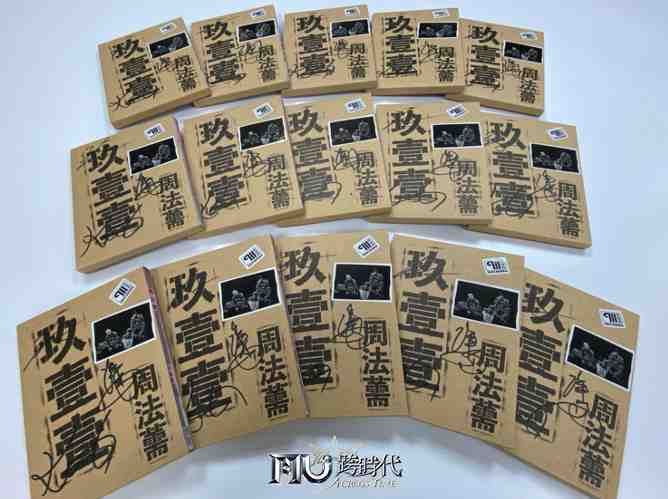 玖壹壹
周法薷
玖壹壹
周法薷
玖壹壹
周法薷
玖壹壹
周法薷
玖壹壹
周法薷
玖壹壹
周法薷
玖壹壹
周法薷
玖壹壹
周法薷
玖壹壹
周法薷
玖壹壹
周法薷
玖壹壹
周法薷
玖壹壹
周法薷
玖壹壹
周法薷
玖壹壹
周法薷
玖壹壹
周法薷
MU 跨時代
ACROSS TIME